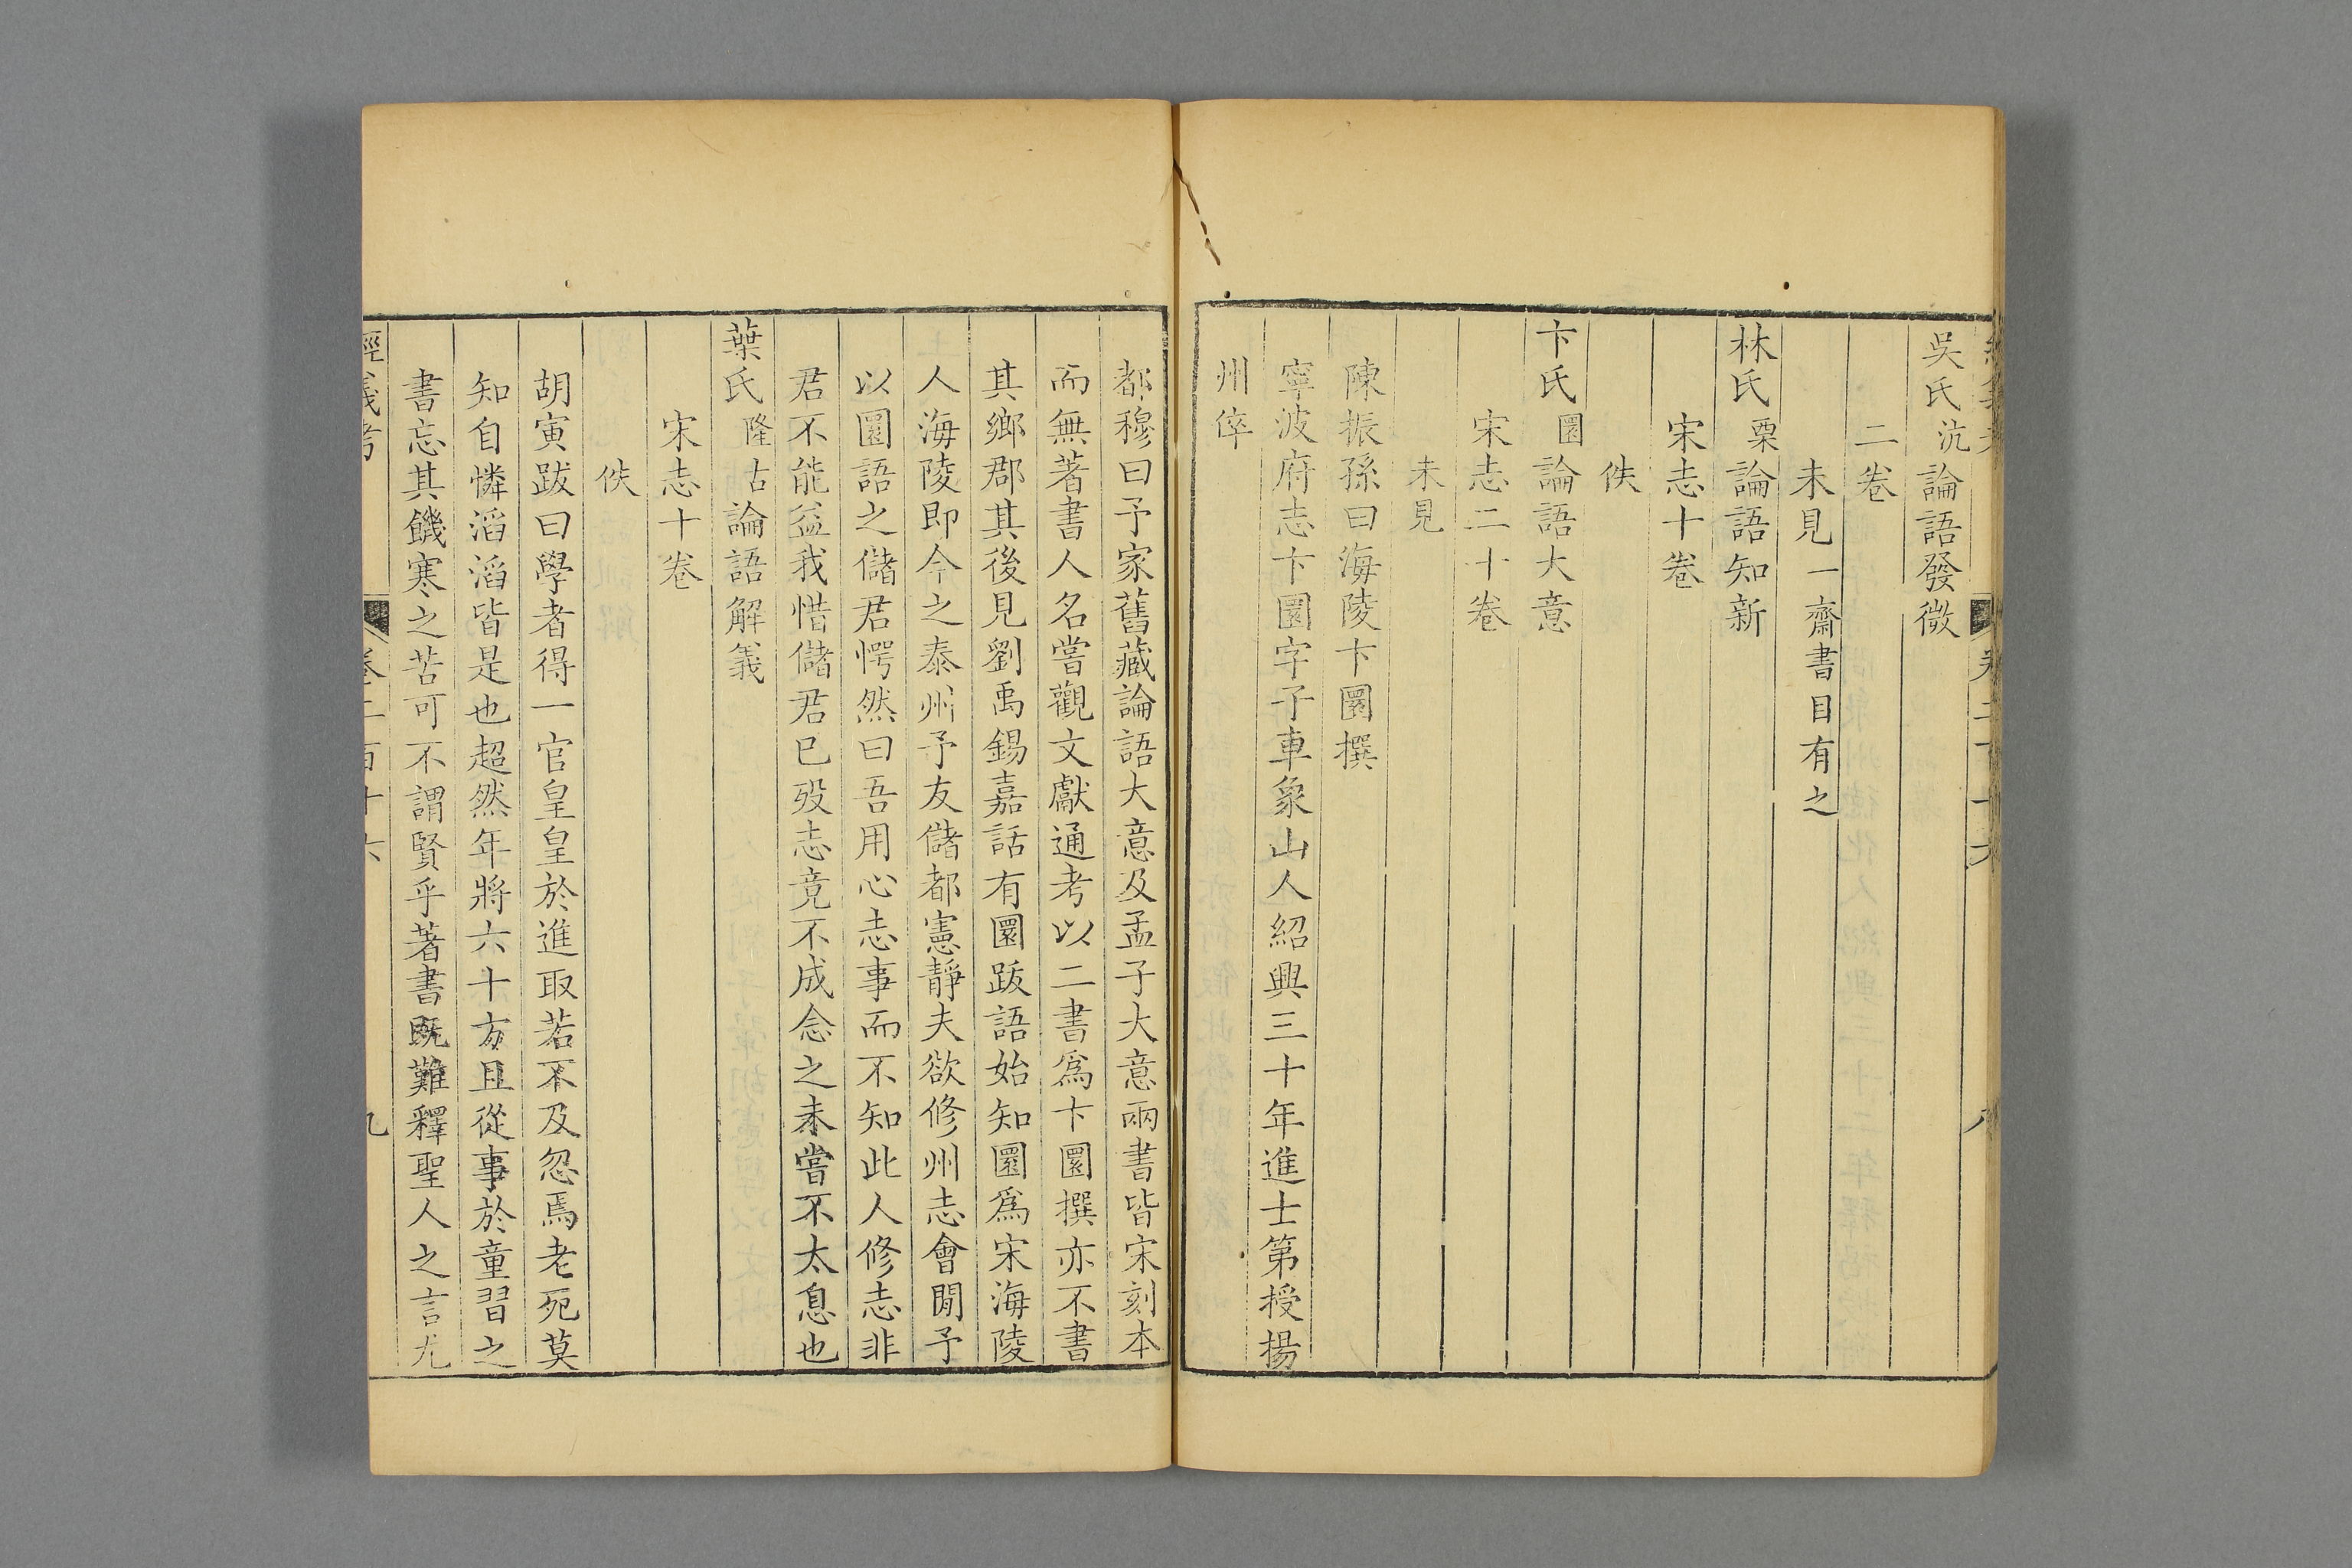 吳氏沆論語發微
二卷
未見一齋書目有之
林氏栗論語知新
宋志十卷
佚
卞氏圜論語大意
宋志二十卷
未見
陳振孫曰海陵卞圜撰
寧波府志卞圜字子車象山人紹興三十年進士第授揚
州倅
都穆曰予家舊藏論語大意及孟子大意兩書皆宋刻本
而無著書人名嘗觀文獻通考以二書爲卞圜撰亦不書
其鄉郡其後見劉禹錫嘉話有圜跋語始知圜爲宋海陵
人海陵即今之泰州予友儲都憲靜夫欲修州志會閒予
以圜語之儲君愕然曰吾用心志事而不知此人修志非
君不能益我惜儲君已歿志竟不成念之未嘗不太息也
葉氏隆古論語解義
宋志十卷
佚
胡寅跋曰學者得一官皇皇於進取若不及忽焉老死莫
知自憐滔滔皆是也超然年將六十方且從事於童習之
書忘其饑寒之苦可不謂賢乎著書既難釋聖人之言尤
經義考 卷二百十六 九